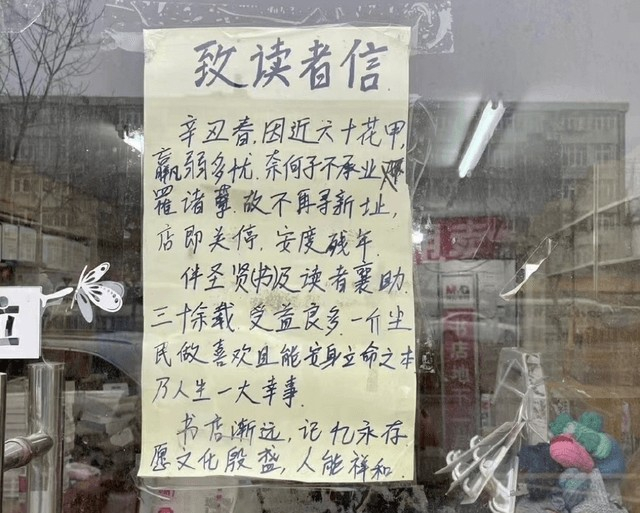 致读者信
辛丑春,因近六十花甲,
羸弱多忧.奈何子不承业
罹诸 故不再寻新址,
店即关停.安度残年.
伴圣贤(书)及读者襄助.
三十余载.受益良多.一介尘
民做喜欢且能安身立命之本
乃人生一大幸事.
书店渐远,记忆永存
愿文化殷盛,人能祥和.
书店地下